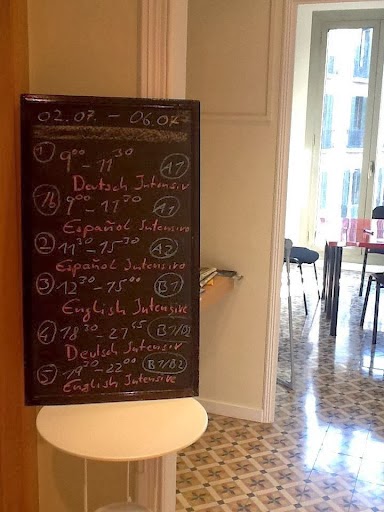 02.07. – 06.07
1 9⁰⁰ – 11³⁰ A1
Deutsch Intensiv
1b 9⁰⁰ – 11³⁰ A1
Español Intensivo
2 11³⁰ – 15³⁰ A2
Español Intensivo
3 12³⁰ – 15⁰⁰ B1
English Intensive
4 18³⁰ – B1/B2
Deutsch Intensiv
5 19³⁰ – 22⁰⁰ B1/B2
English Intensive